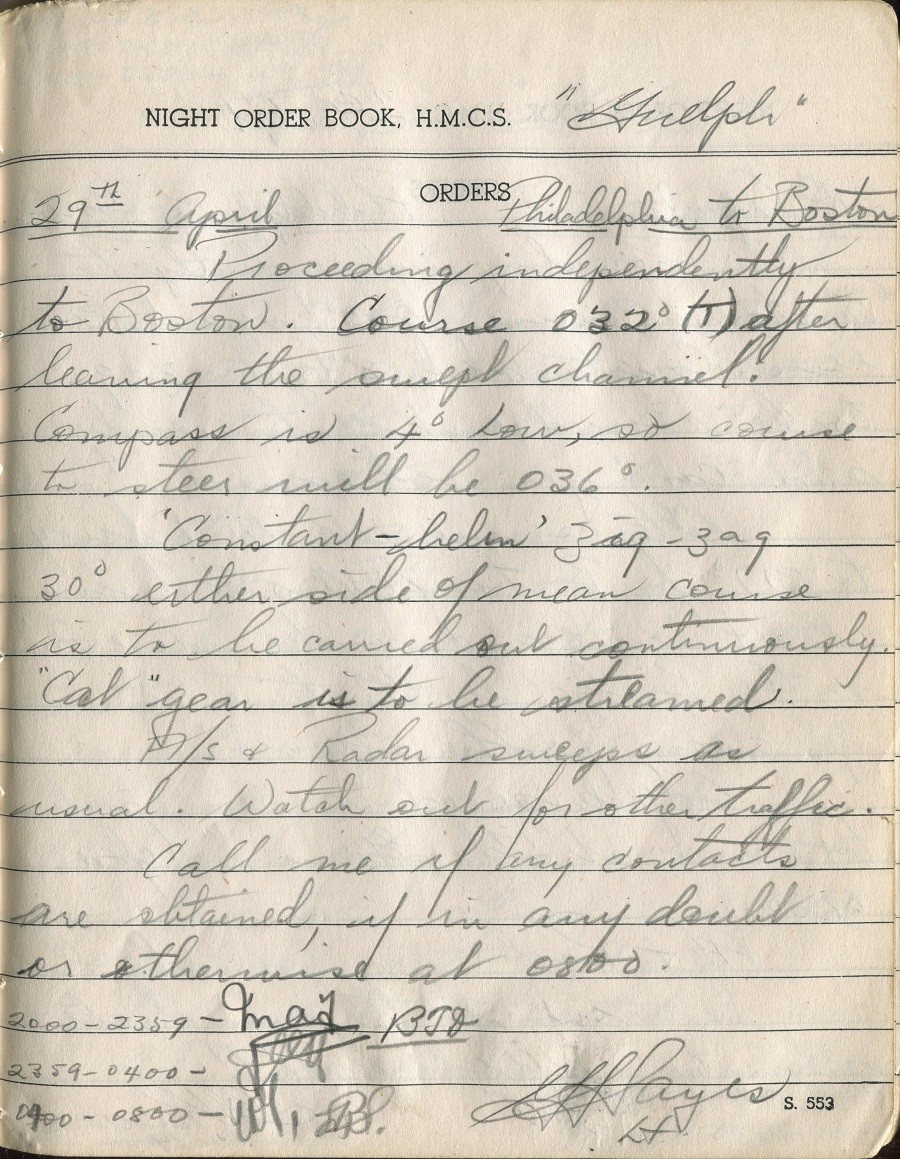 NIGHT ORDER BOOK, H.M.C.S. "Guelph"
ORDERS
29th April Philadelphia to Boston
Proceeding independently
to Boston. Course 032° (T) after
leaving the swept channel.
Compass is 4° Low, so course
to steer will be 036°.
'Constant-helm' zag-zag
30° either side of mean course
is to be carried out continuously.
"Cat" gear is to be streamed.
A/S & Radar sweeps as
usual. Watch out for other traffic.
Call me if any contacts
are obtained, if in any doubt
or otherwise at 0800.
2000-2359-
2359-0400-
0400-0800-
Hayes
Lt.
S. 553